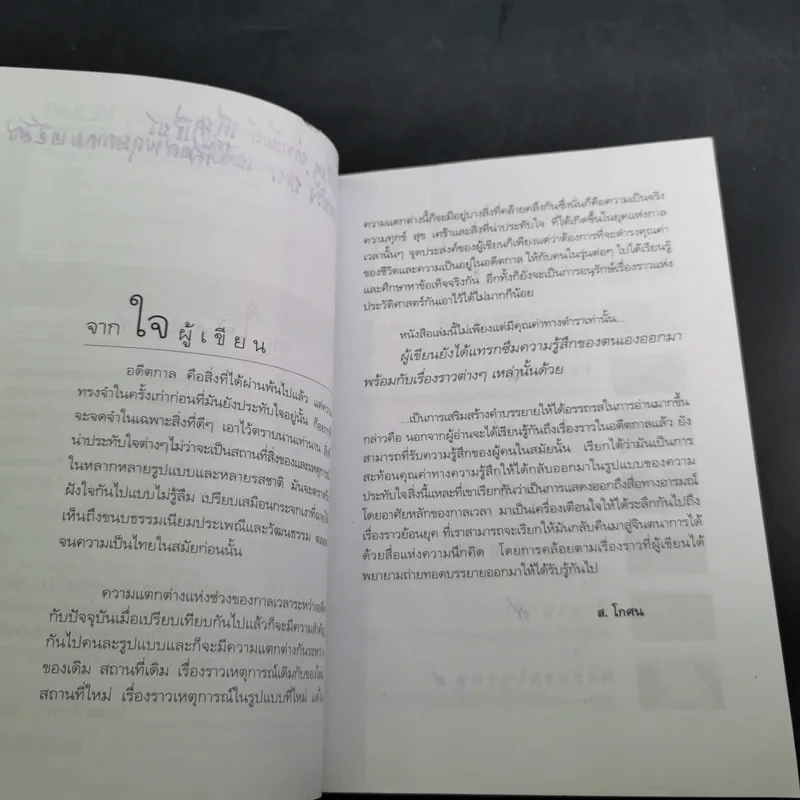 จาก ใจ ผู้เขียน
อดีตกาล คือสิ่งที่ได้ผ่านพ้นไปแล้ว
ทรงจำในครั้งเก่าก่อนที่มันยังประทับใจอยู่นั้น
จะจดจำในเฉพาะสิ่งที่ดีๆ เอาไว้ตราบนานเท่านาน
น่าประทับใจต่างๆไม่ว่าจะเป็นสถานที่สิ่งของและเหตุการณ์
ในหลากหลายรูปแบบและหลายรสชาติ มันจะตราตรึง
ฝังใจกันไปแบบไม่รู้ลืม เปรียบเสมือนกระจกเงาที่
เห็นถึงขนบธรรมเนียมประเพณีและวัฒนธรรม ตลอด
จนความเป็นไทยในสมัยก่อนนั้น
ความแตกต่างแห่งช่วงของกาลเวลาระหว่างอดีต
กับปัจจุบันเมื่อเปรียบเทียบกันไปแล้วก็จะมีความสำคัญ
กันไปคนละรูปแบบและก็จะมีความแตกต่างกันระหว่าง
ของเดิม สถานที่เดิม เรื่องราวเหตุการณ์เดิมกับของใหม่
สถานที่ใหม่ เรื่องราวเหตุการณ์ในรูปแบบที่ใหม่
ความแตกต่างนี้ก็จะมีอยู่บางสิ่งที่คล้ายคลึงกันซึ่งนั่นก็คือความเป็นจริง
ความทุกข์ สุข เศร้าและสิ่งที่น่าประทับใจ ที่ได้เกิดขึ้นในยุคแห่งกาล
เวลานั้นๆ จุดประสงค์ของผู้เขียนก็เพียงแต่ว่าต้องการที่จะดำรงคุณค่า
ของชีวิตและความเป็นอยู่ในอดีตกาล ให้กับคนในรุ่นต่อๆ ไปได้เรียนรู้
และศึกษาหาข้อเท็จจริงกัน อีกทั้งก็ยังจะเป็นการอนุรักษ์เรื่องราวแห่ง
ประวัติศาสตร์กันเอาไว้ได้ไม่มากก็น้อย
หนังสือเล่มนี้ไม่เพียงแต่มีคุณค่าทางตำราเท่านั้น...
ผู้เขียนยังได้แทรกซึมความรู้สึกของตนเองออกมา
พร้อมกับเรื่องราวต่างๆ เหล่านั้นด้วย
...เป็นการเสริมสร้างคำบรรยายให้ได้อรรถรสในการอ่านมากขึ้น
กล่าวคือ นอกจากผู้อ่านจะได้เรียนรู้กันถึงเรื่องราวในอดีตกาลแล้ว ยัง
สามารถที่รับความรู้สึกของผู้คนในสมัยนั้น เรียกได้ว่ามันเป็นการ
สะท้อนคุณค่าทางความรู้สึกให้ได้กลับออกมาในรูปแบบของความ
ประทับใจสิ่งนี้แหละที่เขาเรียกกันว่าเป็นการแสดงออกถึงสื่อทางอารมณ์
โดยอาศัยหลักของกาลเวลา มาเป็นเครื่องเตือนใจให้ได้ระลึกกันไปถึง
เรื่องราวย้อนยุค ที่เราสามารถจะเรียกให้มันกลับคืนมาสู่จินตนาการได้
ด้วยสื่อแห่งความนึกคิด โดยการคล้อยตามเรื่องราวที่ผู้เขียนได้
พยายามถ่ายทอดบรรยายออกมาให้ได้รับรู้กันไป
ส. โกศน